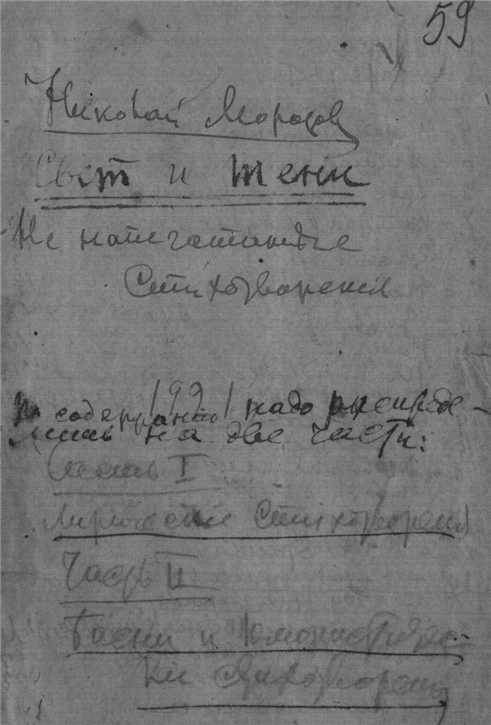 59
Николай Морозов
Свет и тени
Не напечатанные
Стихотворения
По содержанию надо распреде-
лить на две части:
Часть I
Лирические Стихотворения
Часть II
Басни и Юмористичес-
кие Стихотворения